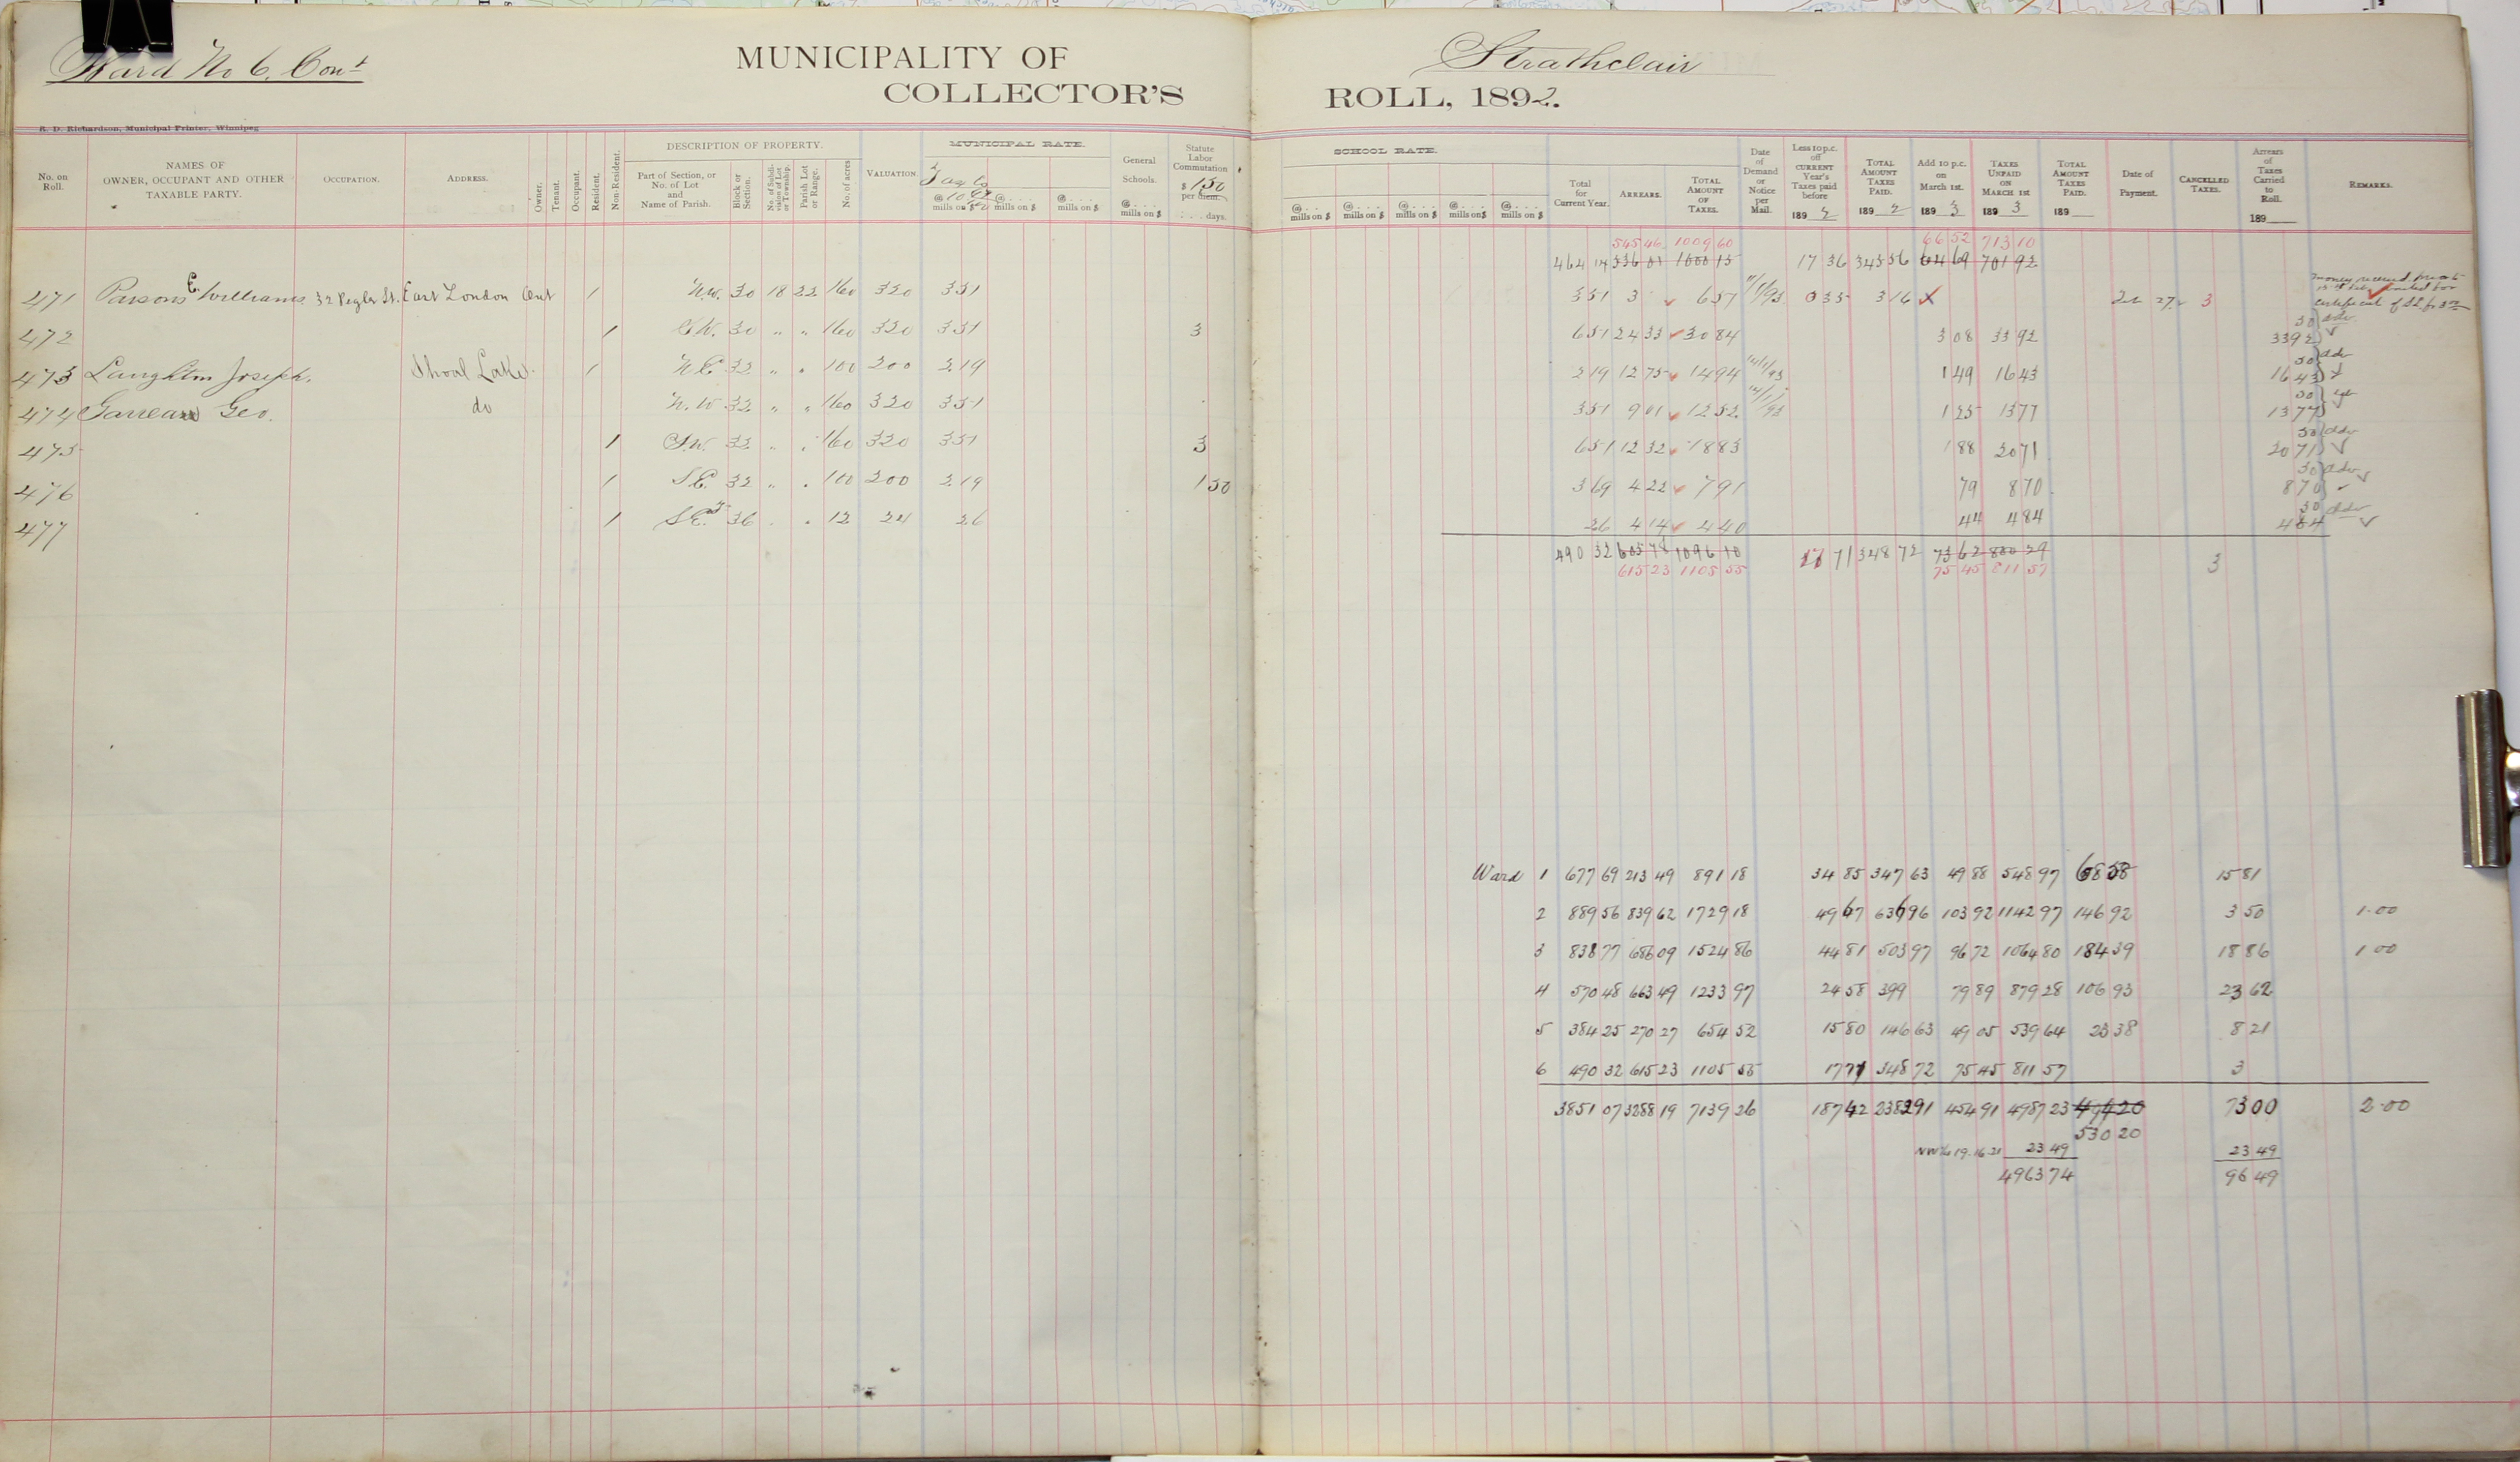 Ward No 6. Cont
MUNICIPALITY OF Strathclair
COLLECTOR'S ROLL, 1892.
R. D. Richardson, Municipal Printer, Winnipeg
No. on Roll. NAMES OF OWNER, OCCUPANT AND OTHER TAXABLE PARTY. OCCUPATION. ADDRESS. Owner. Tenant. Occupant. Resident. Non-Resident. DESCRIPTION OF PROPERTY. Part of Section, or No. of Lot and Name of Parish. Block or Section. No. of Subdivision of Lot or Township. Parish Lot or Range. No. of acres VALUATION. MUNICIPAL RATE. @ mills on $ @ mills on $ @ mills on $ General Schools. @ mills on $ Statute Labor Commutation $ 1 50 per diem. days.
SCHOOL RATE. @ mills on $ @ mills on $ @ mills on $ @ mills on $ @ mills on $ Total for Current Year. ARREARS. TOTAL AMOUNT OF TAXES. Date of Demand or Notice per Mail. Less 10 p.c. off CURRENT Year's Taxes paid before 189 2 TOTAL AMOUNT TAXES PAID. 189 2 Add 10 p.c. on March 1st. 189 3 TAXES UNPAID ON MARCH 1ST 189 3 TOTAL AMOUNT TAXES PAID. 189 Date of Payment. CANCELLED TAXES. Arrears of Taxes Carried to Roll. 189 REMARKS.
545 46 1009 60 66 52 713 10
464 14 536 01 1000 15 17 36 345 56 64 69 701 92
471 Parsons E. Williams 32 Pegler St. East London Ont 1 N.W. 30 18 22 160 320 351 351 3 657 035 316 X 3
472 1 S.W. 30 " " 160 320 351 3 651 2433 3084 308 3392 3392
473 Laughton Joseph. Shoal Lake. 1 N.E. 32 " " 100 200 219 219 1275 1494 149 1643 1643
474 Garreau Geo. do N.W 32 " " 160 320 351 351 901 1252 125 1377 1377
475 1 S.W. 32 " " 160 320 351 3 651 1232 1883 188 2071 2071
476 1 S.E. 32 " " 100 200 219 1 50 369 422 791 79 870 870
477 1 S.E. 36 " " 12 24 26 26 414 440 44 484 484
490 32 605 78 1096 10 17 71 348 72 73 62 800 29 3
615 23 1105 55 75 45 811 57
Ward 1 677 69 213 49 891 18 34 85 347 63 49 88 548 97 68 58 15 81
2 889 56 839 62 1729 18 49 67 636 96 103 92 1142 97 146 92 3 50 1.00
3 838 77 686 09 1524 86 44 81 503 97 96 72 1064 80 184 39 18 86 1 00
4 570 48 663 49 1233 97 24 58 399 79 89 879 28 106 93 23 62
5 384 25 270 27 654 52 15 80 146 63 49 05 539 64 23 38 8 21
6 490 32 615 23 1105 55 17 71 348 72 75 45 811 57 3
3851 07 3288 19 7139 26 187 42 2382 91 454 91 4987 23 494 20 73 00 2.00
530 20
NW¼ 19.16.21 23 49 23 49
4963 74 96 49